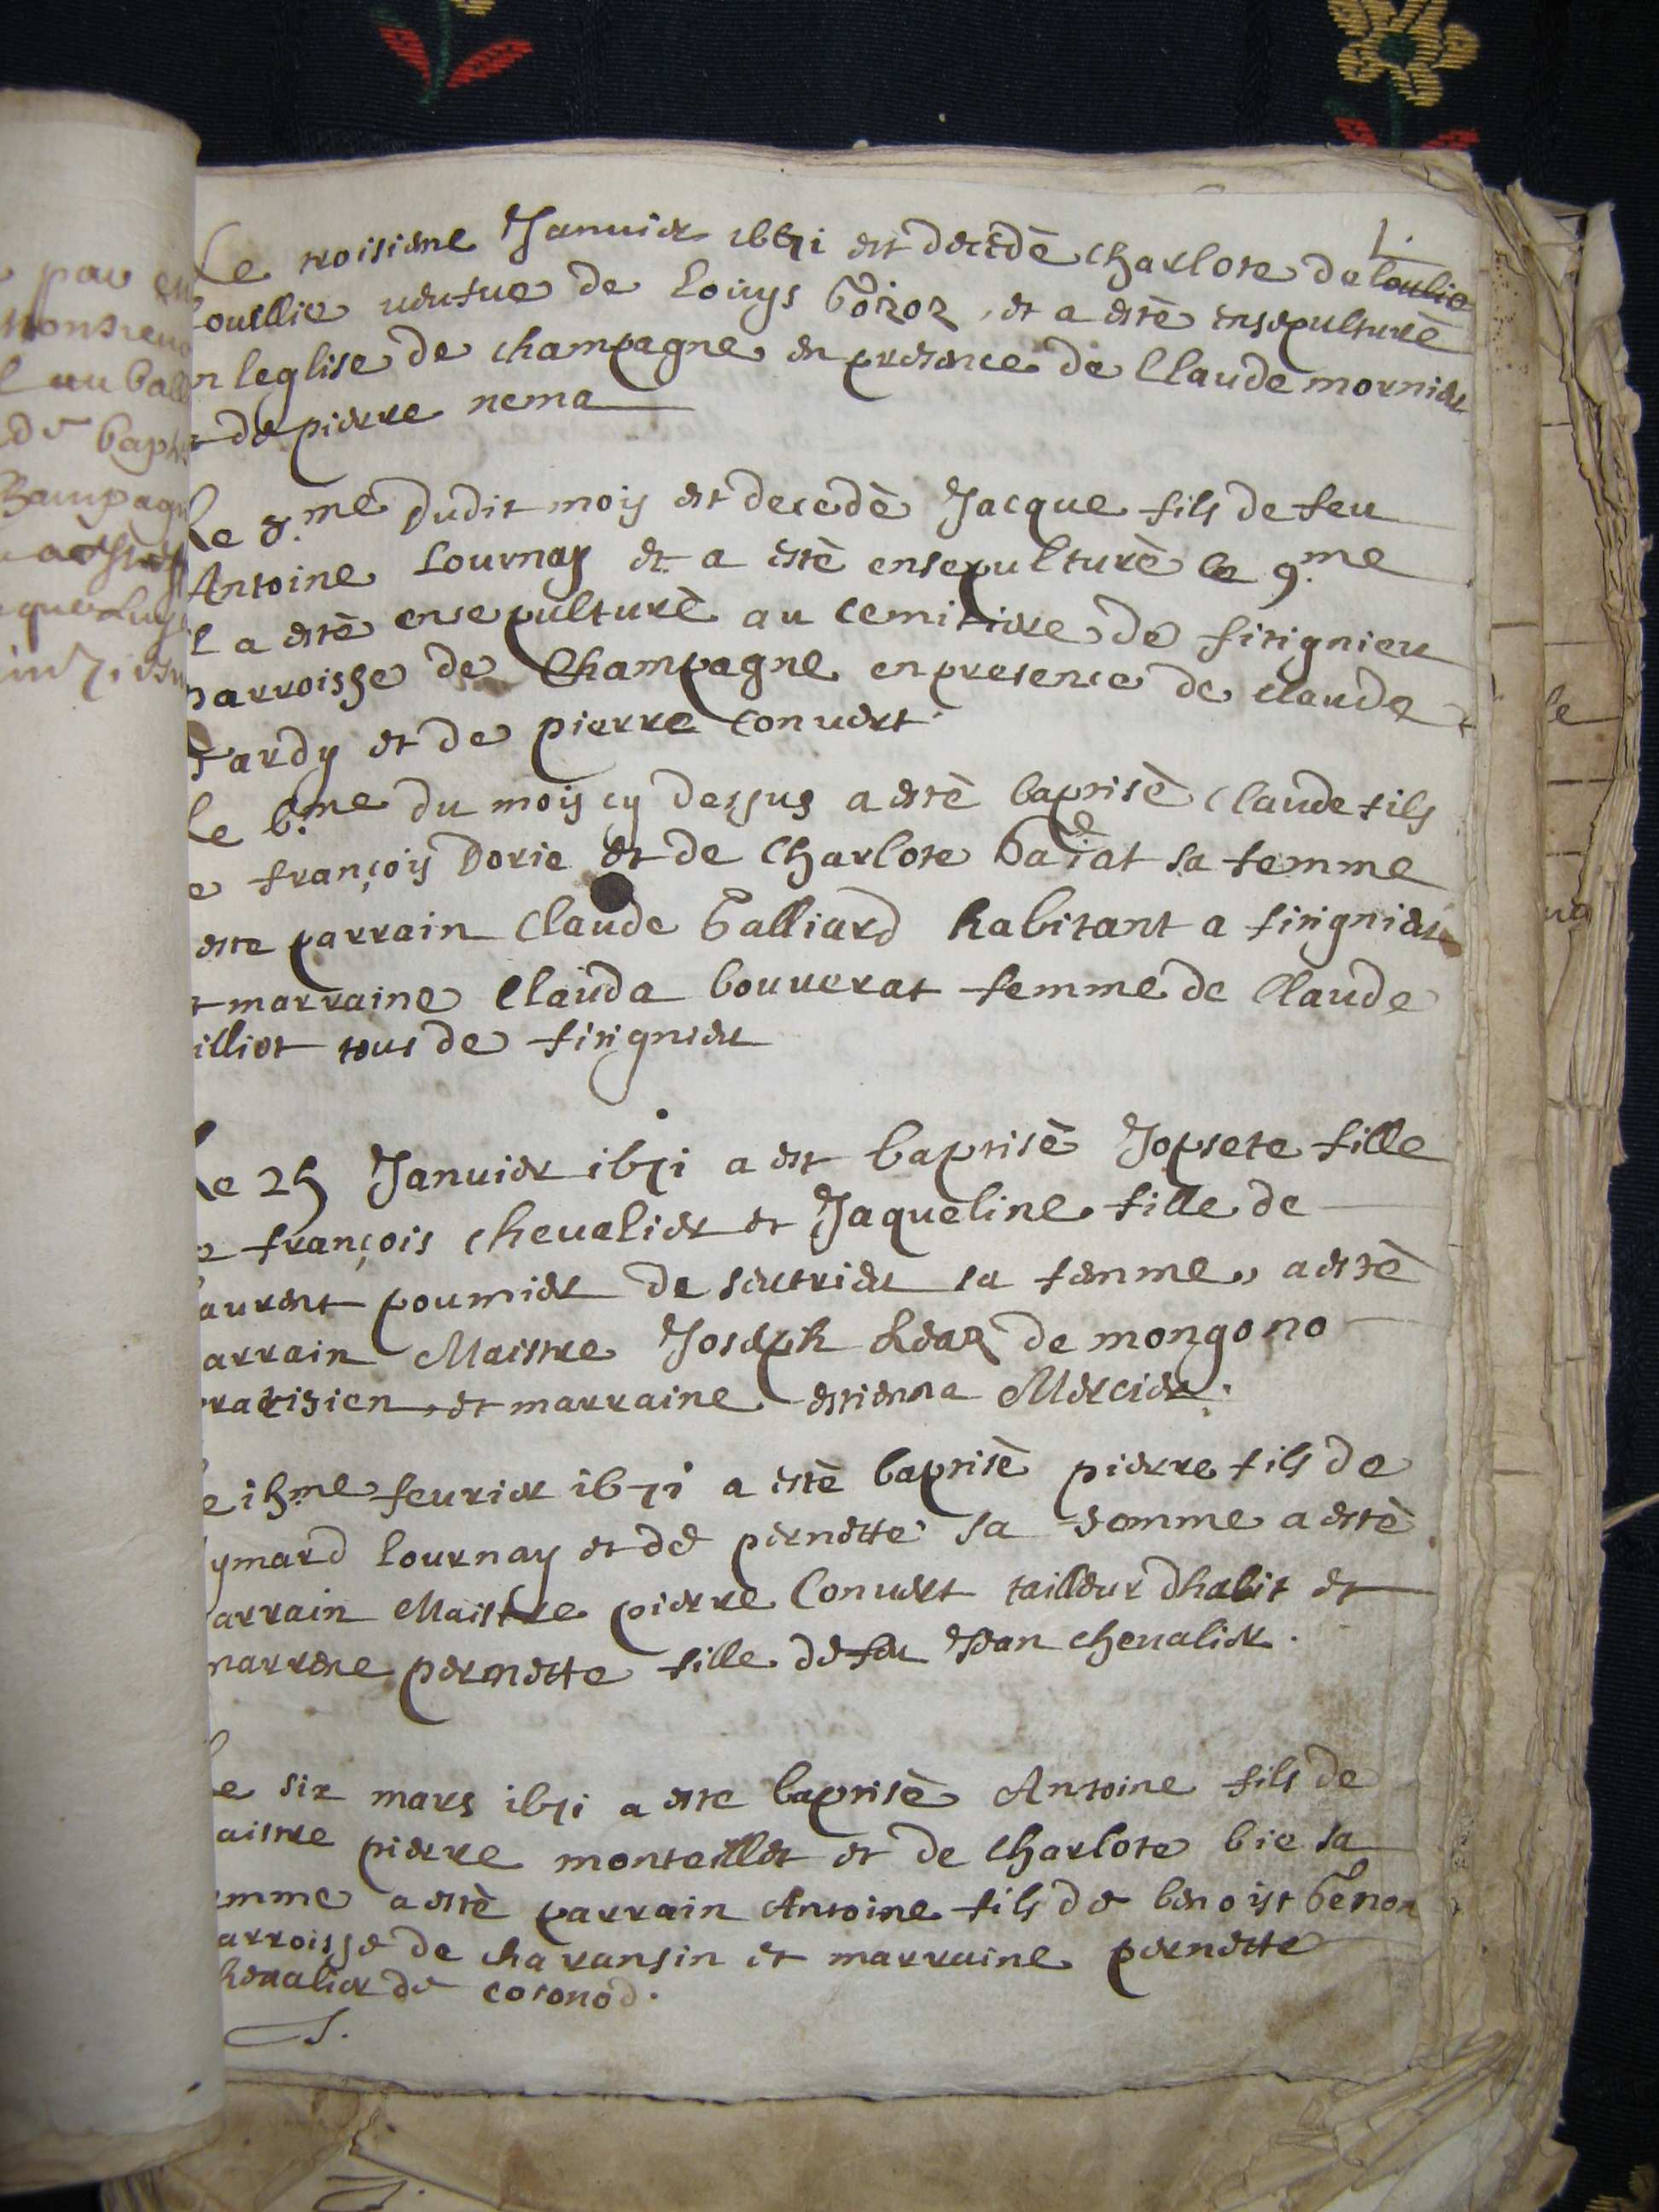 Le troisiene Janvier 1671 est decedè Charlote de
ouillie veufue de Louys Goizoz, et a estè ensepulturè
n leglise de champagne en presence de Claude mornieu
t de pierre nema
Le 8.me dudit mois est decedè Jacque fils de feu
Antoine Lournay et a estè ensepulturè le 9.me
l a estè ensepulturè au cemitiere de fitignieu
parroisse de Champagne en presence de claude
tardy et de pierre convert
Le 6.me du mois cy dessus a estè baptisè Claude fils
e françois Dorie et de Charlote sa femme
este parrain Claude Galliard habitant a fitignieu
t marraine Clauda bouverat femme de Claude
illiot tous de fitignieu
Le 25 Janvier 1671 a est baptisè Jopsete fille
e françois chevalier et Jaqueline fille de
aurent poumier de seutrieu sa femme, a estè
arrain Maistre Joseph de mongono
ratisien et marraine estienna Mercier.
e 15me fevrier 1671 a estè baptisè pierre fils de
ymard Lournay et de pernette sa femme a estè
arrain Maistre pierre Convert tailleur dhabit et
marrene pernette fille de feu Jean chevalier.
Le six mars 1671 a este baptisè Antoine fils de
aistre pierre monteillet et de Charlote bie sa
emme a estè parrain Antoine fils de benoist Genon
arroisse de charansin et marraine pernette
hevalier de cosonod.